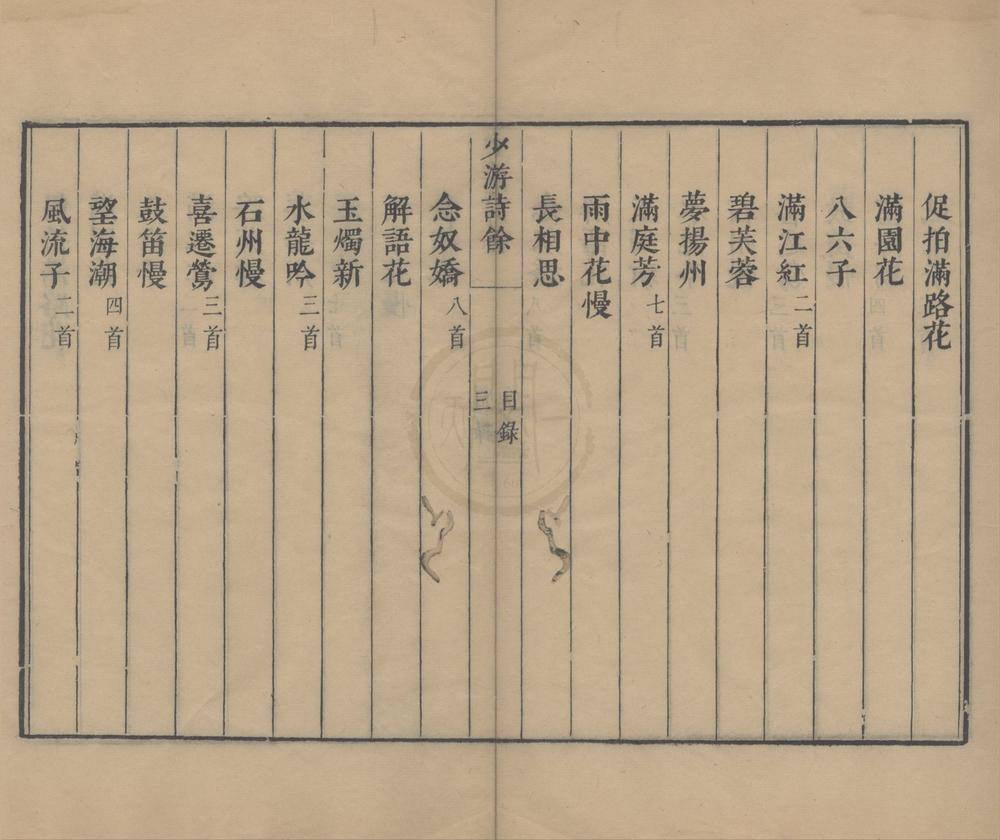 促拍滿路花
滿園花
八六子
滿江紅二首
碧芙蓉
夢揚州
滿庭芳七首
雨中花慢
長相思
少游詩餘
目錄
三
念奴嬌八首
解語花
玉燭新
水龍吟三首
石州慢
喜遷鶯三首
鼓笛慢
望海潮四首
風流子二首